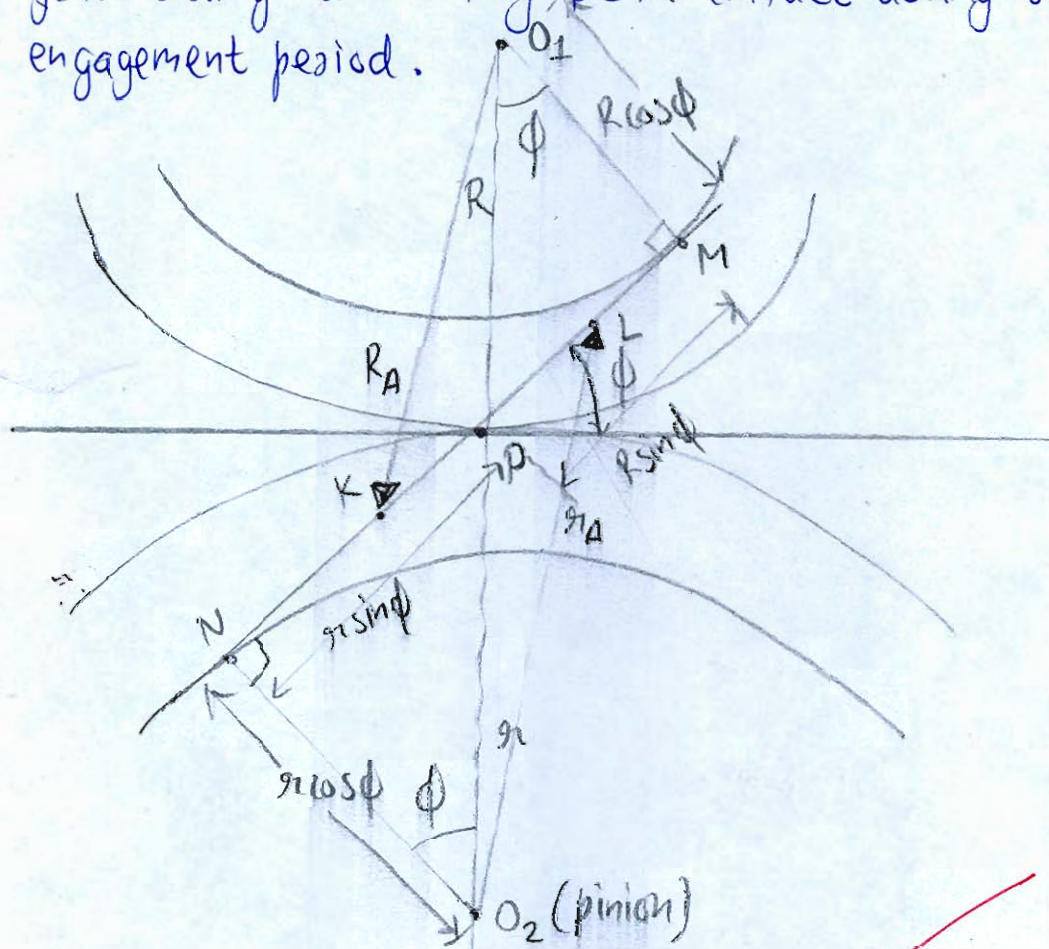 engagement period.
O1
ϕ
Rcosϕ
R
M
RA
L
ϕ
K
P
Rsinϕ
rA
N
rsinϕ
r
rcosϕ
ϕ
O2 (pinion)